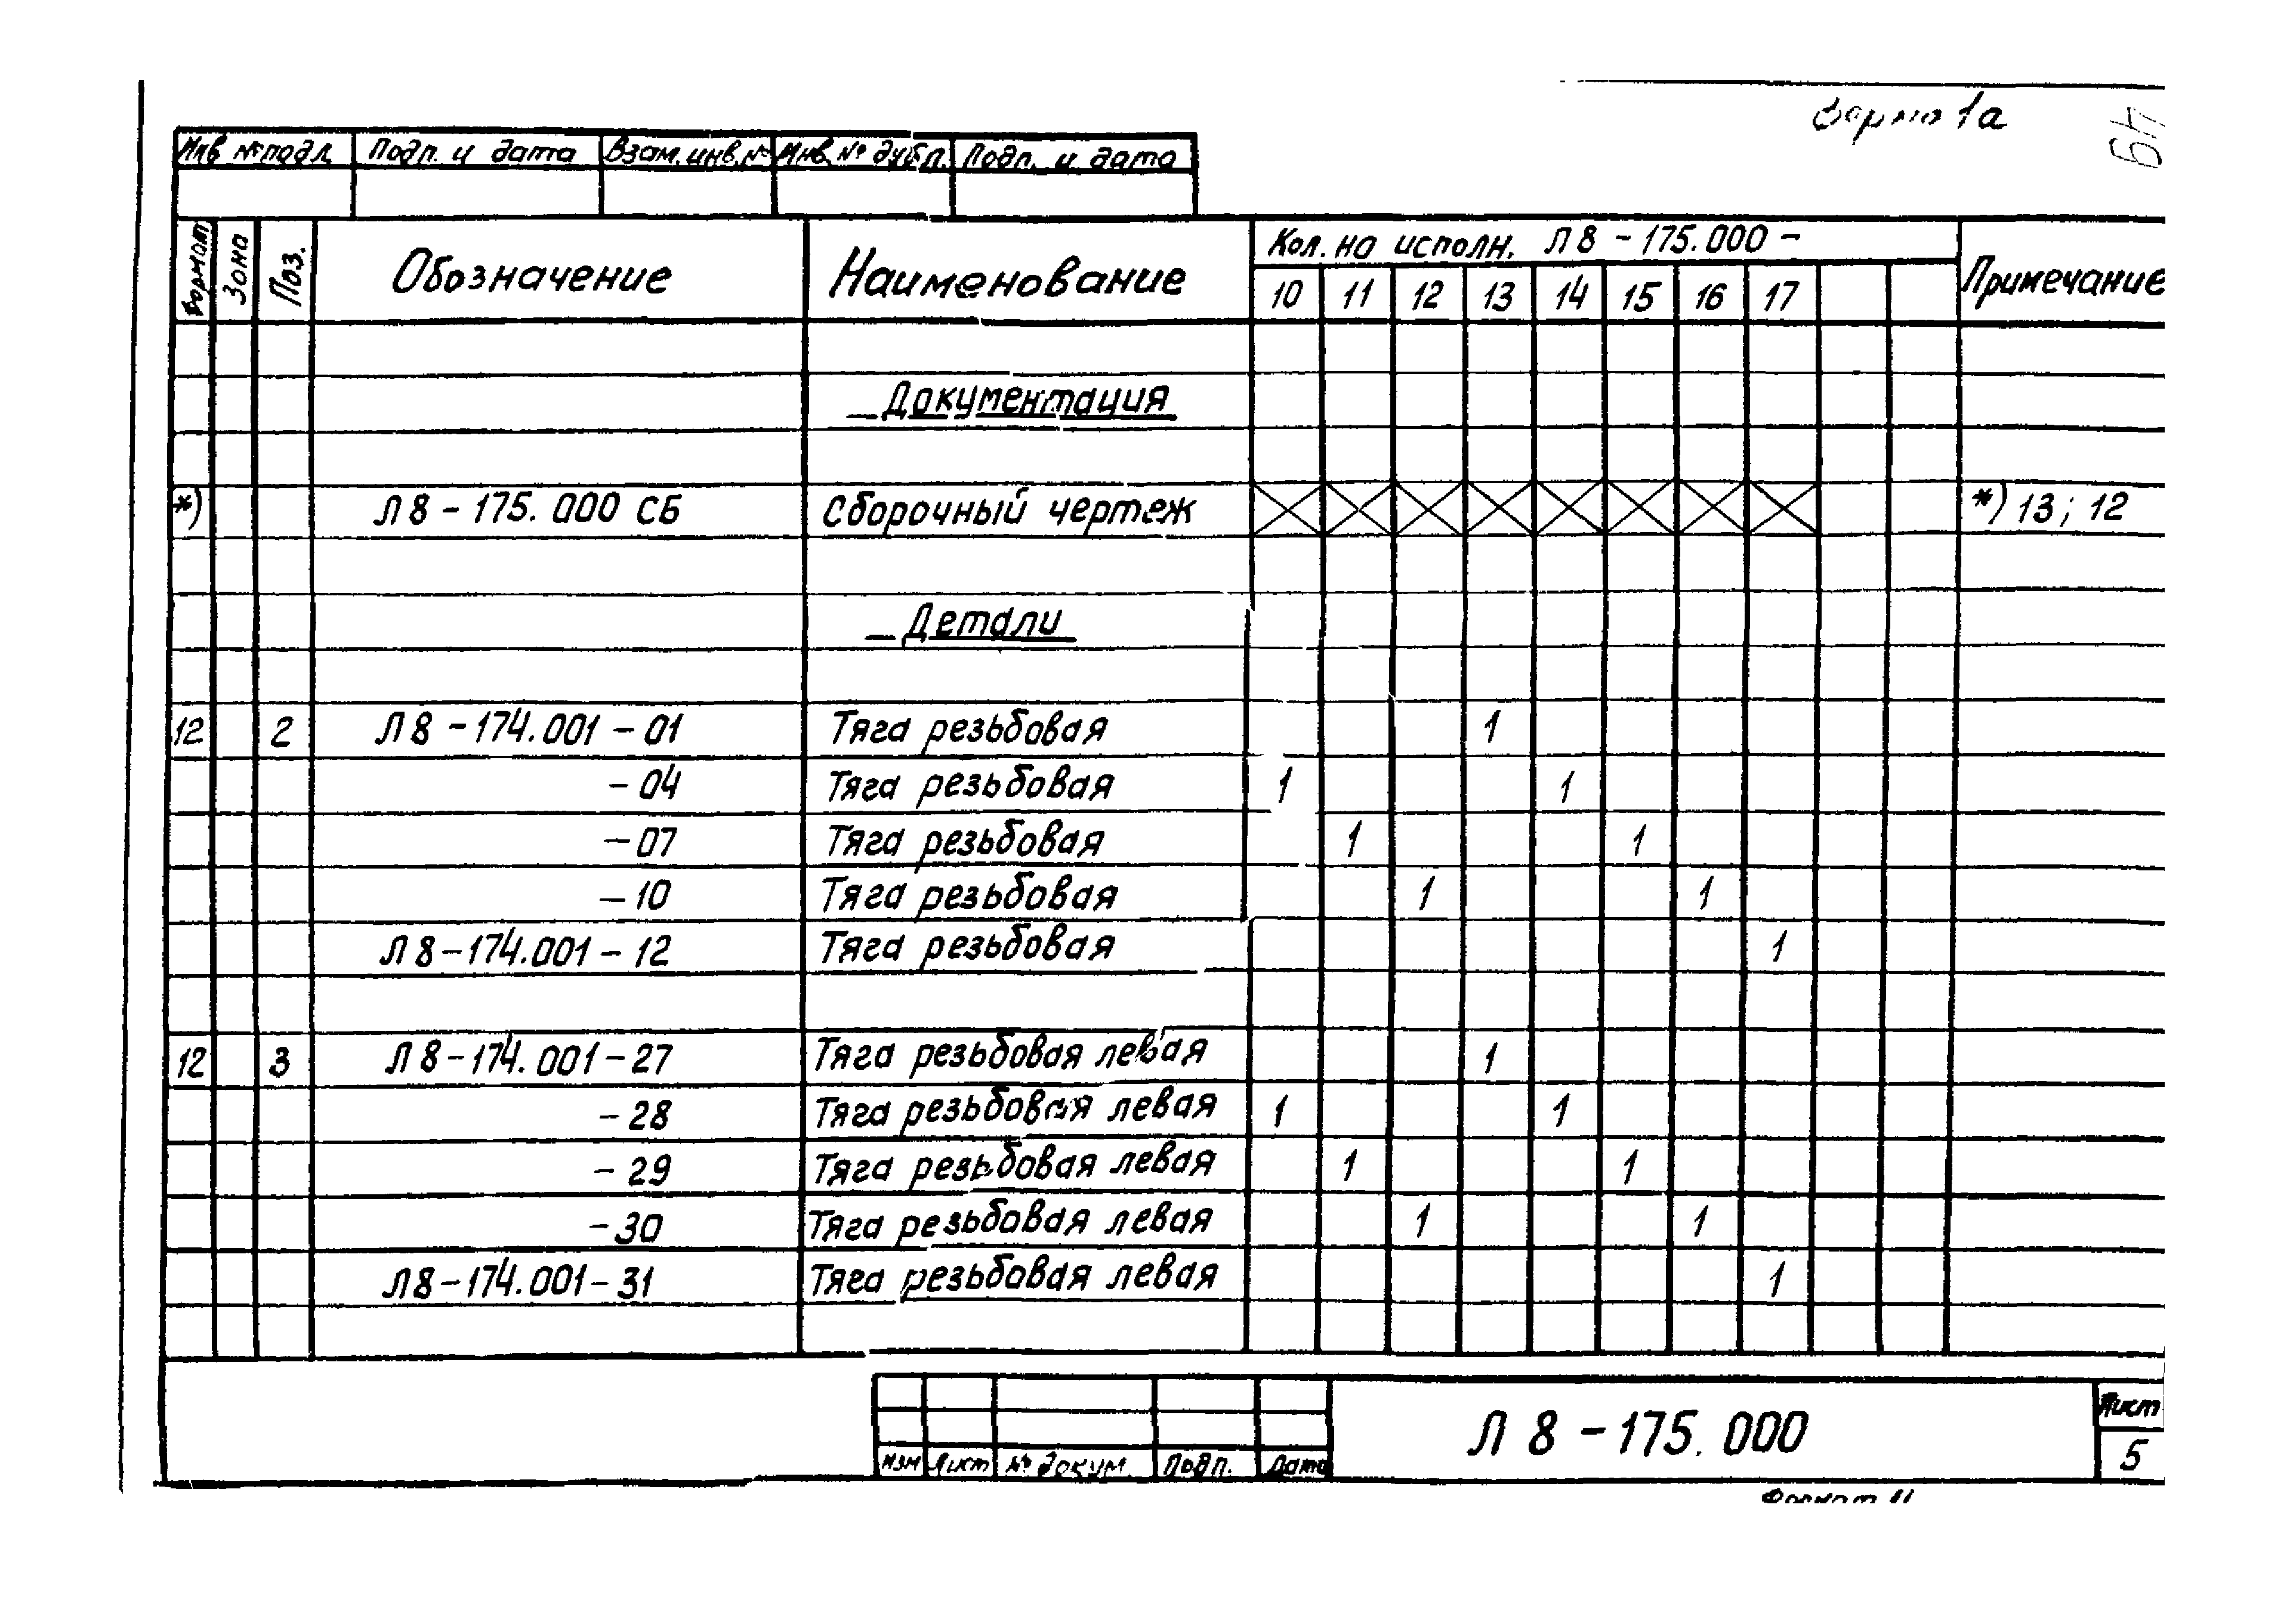 Форма 1а
49
Инв № подл. Подп. и дата Взам. инв. № Инв. № дубл. Подп. и дата
Формат Зона Поз. Обозначение Наименование Кол. на исполн. Л 8 - 175.000 - Примечание
10 11 12 13 14 15 16 17
Документация
*) Л 8 - 175. 000 СБ Сборочный чертеж *) 13; 12
Детали
12 2 Л 8 - 174.001 - 01 Тяга резьбовая 1
- 04 Тяга резьбовая 1 1
- 07 Тяга резьбовая 1 1
- 10 Тяга резьбовая 1 1
Л 8 - 174.001 - 12 Тяга резьбовая 1
12 3 Л 8 - 174.001 - 27 Тяга резьбовая левая 1
- 28 Тяга резьбовая левая 1 1
- 29 Тяга резьбовая левая 1 1
- 30 Тяга резьбовая левая 1 1
Л 8 - 174.001 - 31 Тяга резьбовая левая 1
Изм Лист № докум. Подп. Дата Л 8 - 175. 000 Лист
5
Формат 11